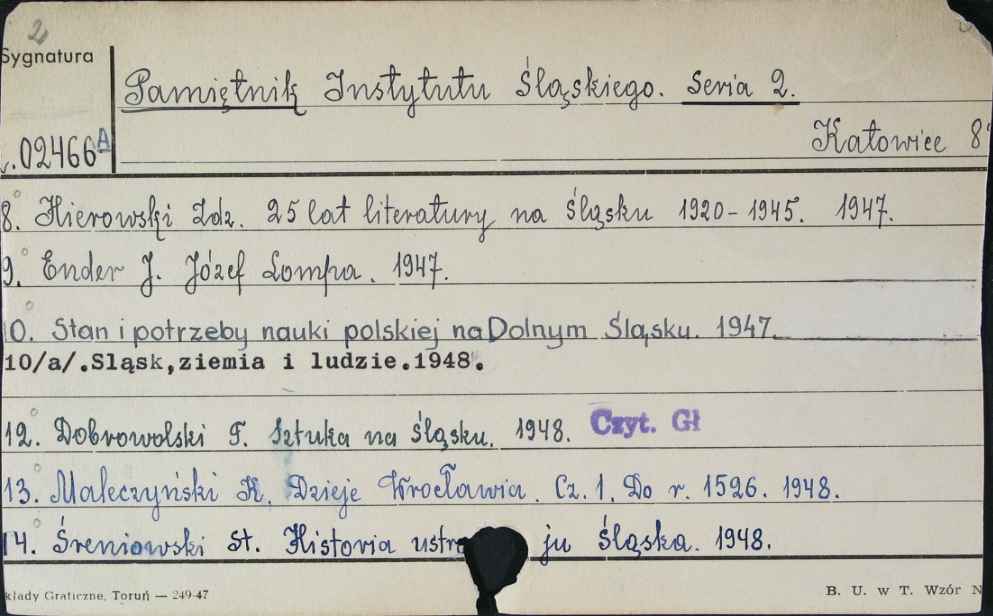 2
Sygnatura
Pamiętnik Instytutu Śląskiego. Seria 2.
.02466 A
Katowice 8°
8. Hierowski Zdz. 25 lat literatury na Śląsku 1920-1945. 1947.
9. Ender J. Józef Lompa. 1947.
10. Stan i potrzeby nauki polskiej na Dolnym Śląsku. 1947.
10/a/.Sląsk,ziemia i ludzie.1948.
12. Dobrowolski T. Sztuka na Śląsku. 1948. Czyt. Gł
13. Maleczyński K. Dzieje Wrocławia. Cz. 1. Do r. 1526. 1948.
14. Śreniowski St. Historia ustro ju Śląska. 1948.
kłady Graficzne, Toruń — 249-47
B. U. w T. Wzór N